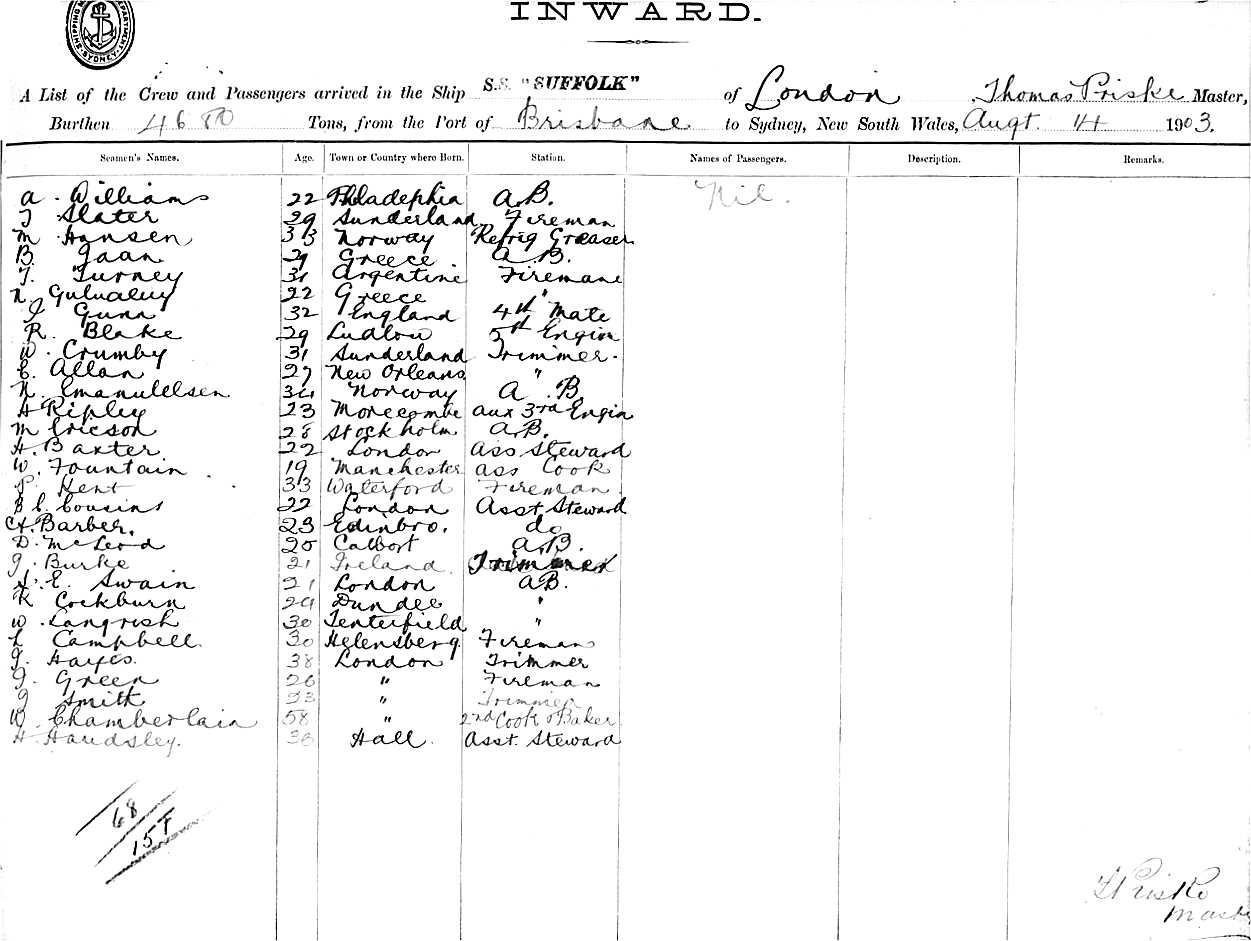 INWARD.
SHIPPING DEPARTMENT SYDNEY
A List of the Crew and Passengers arrived in the Ship S.S. "SUFFOLK" of London Thomas Priske Master,
Burthen 4680 Tons, from the Port of Brisbane to Sydney, New South Wales, Augt. 14 1903.
Seamen's Names. Age. Town or Country where Born. Station. Names of Passengers. Description. Remarks.
A. Williams 22 Philadephia A.B. Nil.
T Slater 29 Sunderland Fireman
M Hansen 33 Norway Refrig Greaser
B. Jaan 29 Greece A.B.
T. Turney 31 Argentine Firemane
N. 22 Greece "
J Gunn 32 England 4th Mate
R. Blake 29 Ludlow 5th Engin
W. Crumby 31 Sunderland Trimmer.
C. Allan 27 New Orleans "
N. Emanulelsen 34 Norway A.B
H Ripley 23 Morecombe aux 3rd Engin
M Ericson 28 Stockholm A.B.
H. Baxter 22 London Ass Steward
W. Fountain 19 Manchester ass Cook
P. Kent 33 Waterford Fireman
B C. Cousins 22 London Asst Steward
H. Barber. 23 Edinbro. do
D. McLeod 20 A.B.
J. Burke 21 Ireland. Trimmer
E. Swain 21 London AB.
R Cockburn 29 Dundee "
W. Langrish 30 Tenterfield "
L Campbell 30 Helensberg. Fireman
J. Hayes. 38 London Trimmer
J. Green 26 " Fireman
J Smith 23 " Trimmer
W Chamberlain 58 " 2nd Cook & Baker
H. Handsley. 38 Hall. Asst. Steward
68
15
T Priske
Master